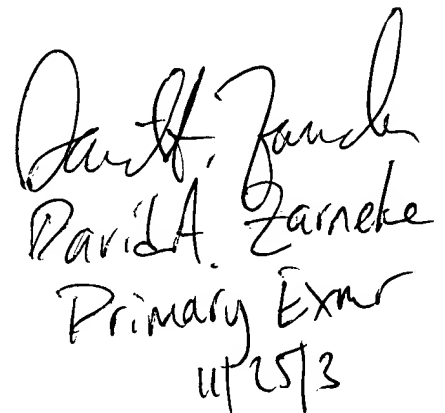 David A. Zarneke
David A. Zarneke
Primary Exmr
11/25/3